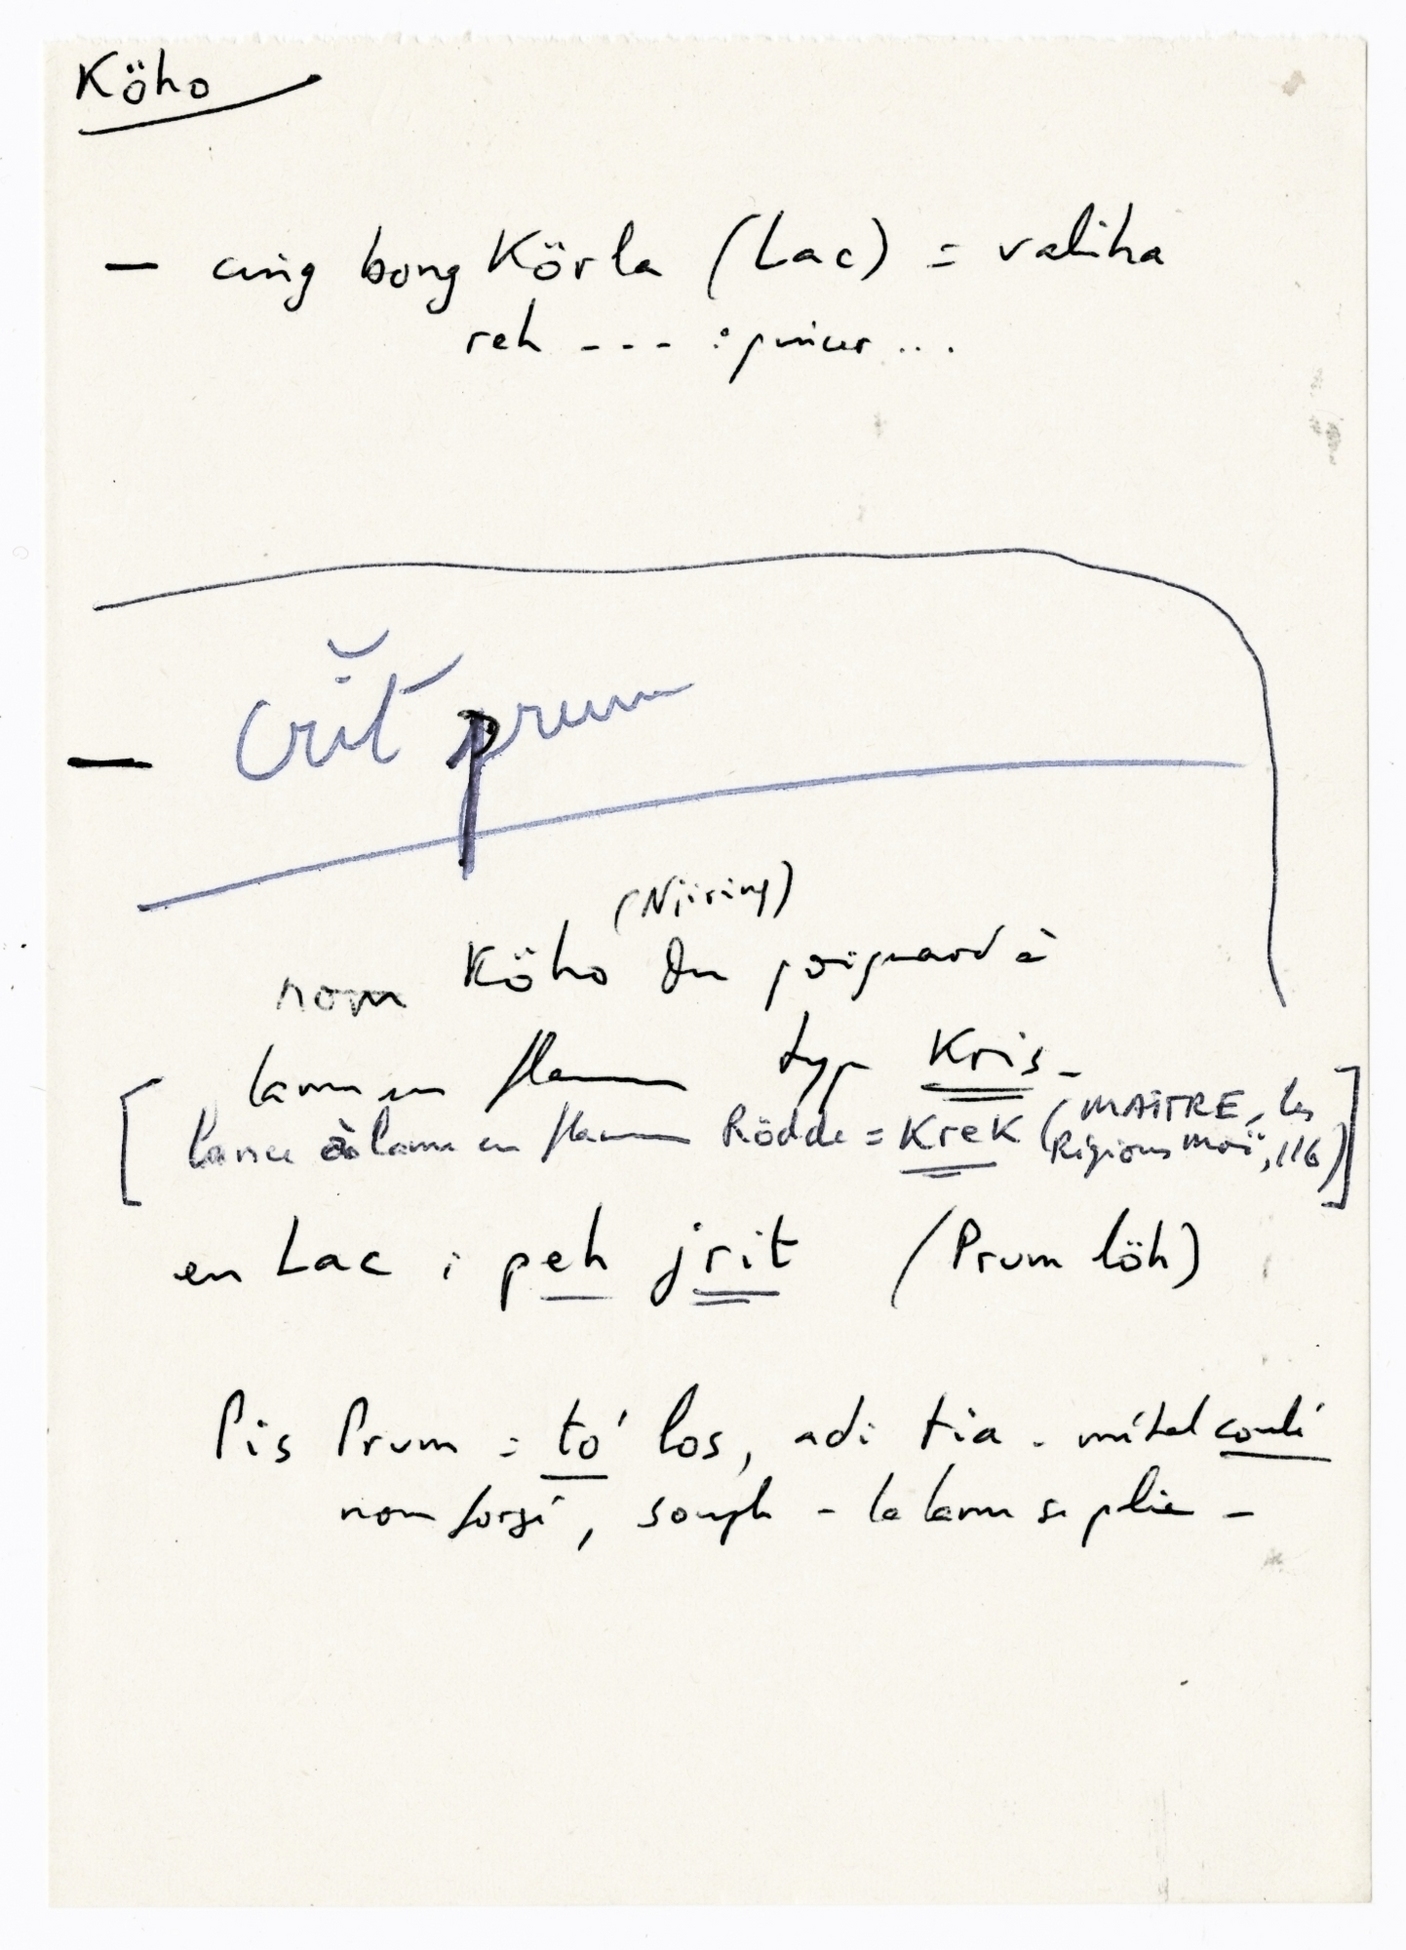 Köho
— cing bong Körla (Lac) = valiha
reh - - - : pincer ...
— crĭt prum
(Njiring)
nom Köho du poignard à
lame en flamme type Kris -
[lance à lame en flamme Rödde = Krek (MAITRE, les Régions Moï, 116)]
en Lac : peh jrit (Prum löh)
Pis Prum = tó los, adi tia . métal coulé
non forgé, souple - la lame se plie -